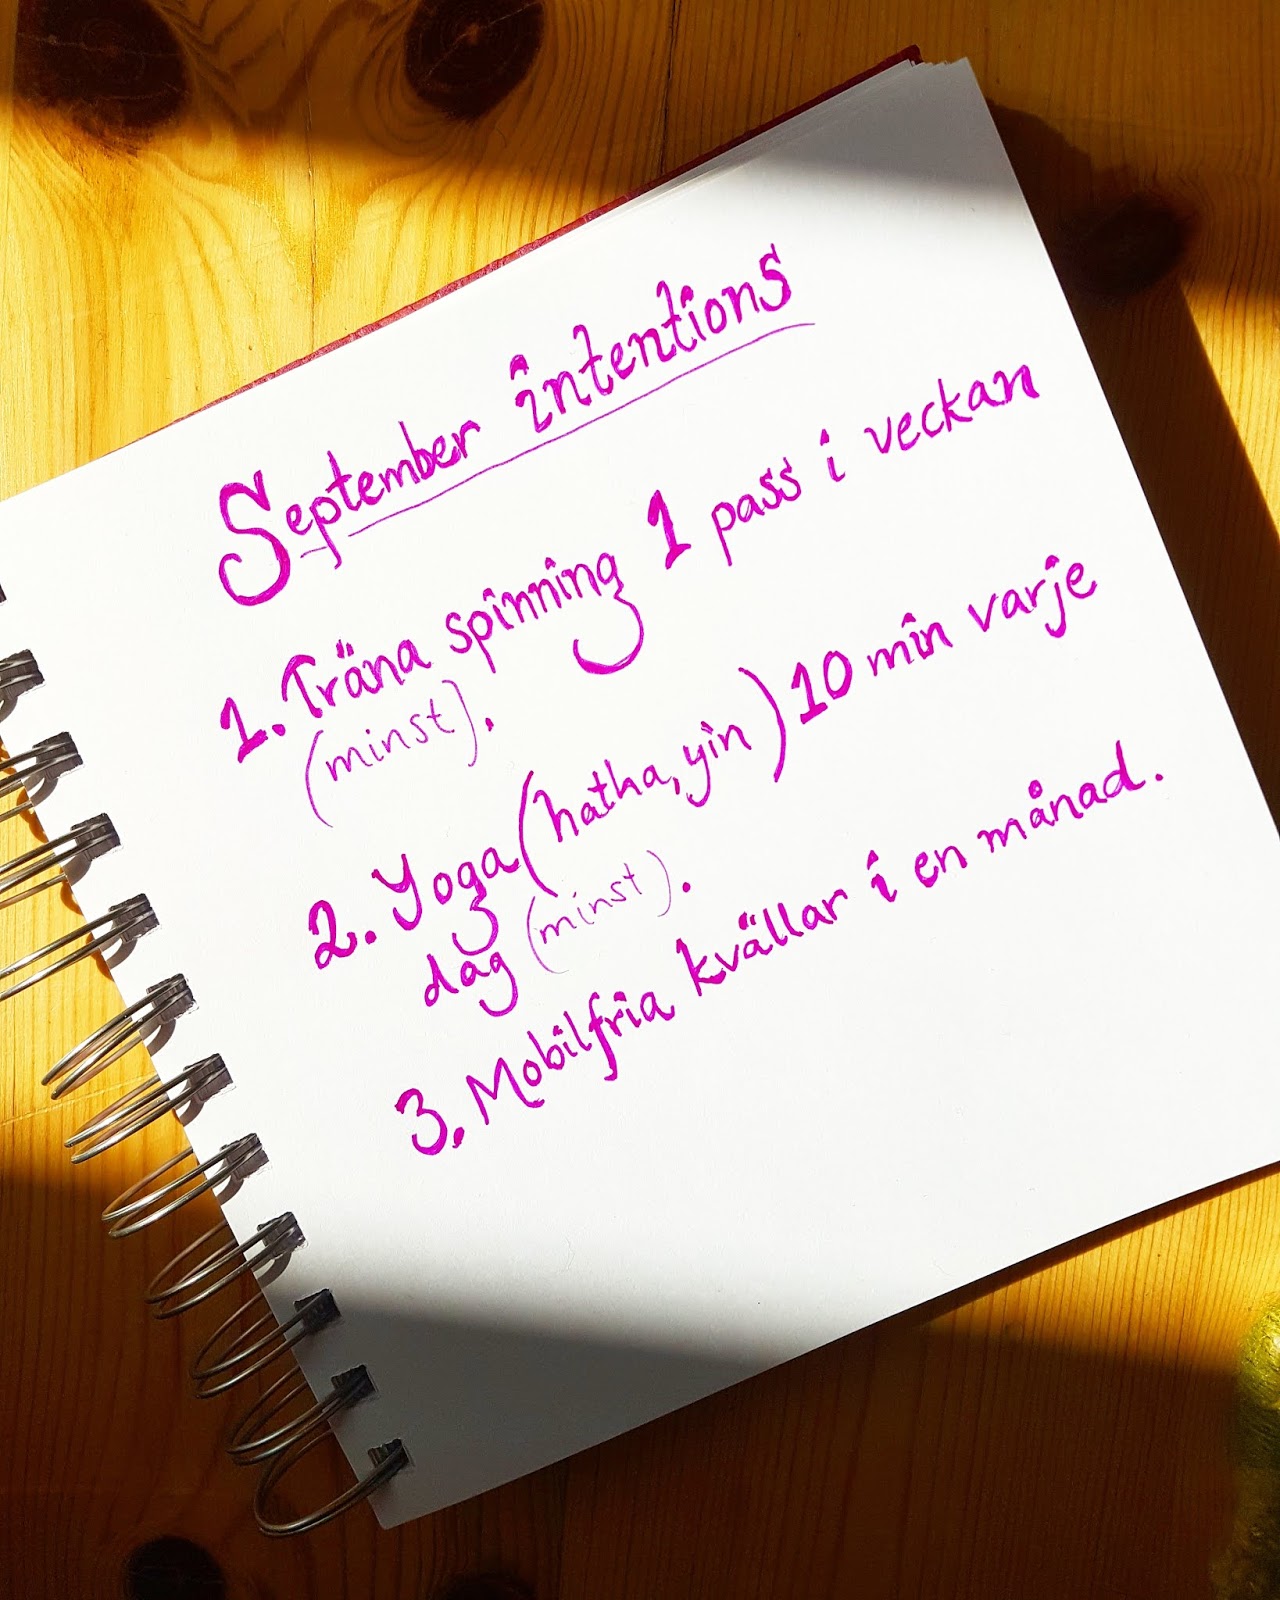 September intentions
1. Träna spinning 1 pass i veckan
(minst).
2. Yoga (hatha, yin) 10 min varje
dag (minst).
3. Mobilfria kvällar i en månad.